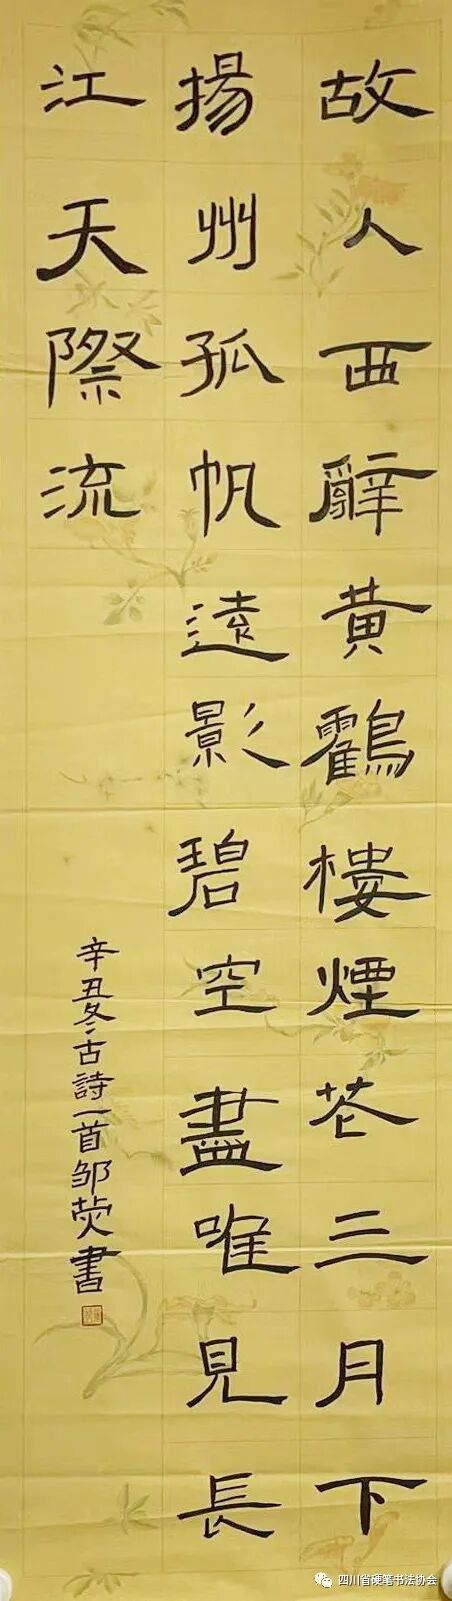 故人西辭黃鶴樓煙花三月下
揚州孤帆遠影碧空盡唯見長
江天際流
辛丑冬古詩一首邹熒書
四川省硬笔书法协会